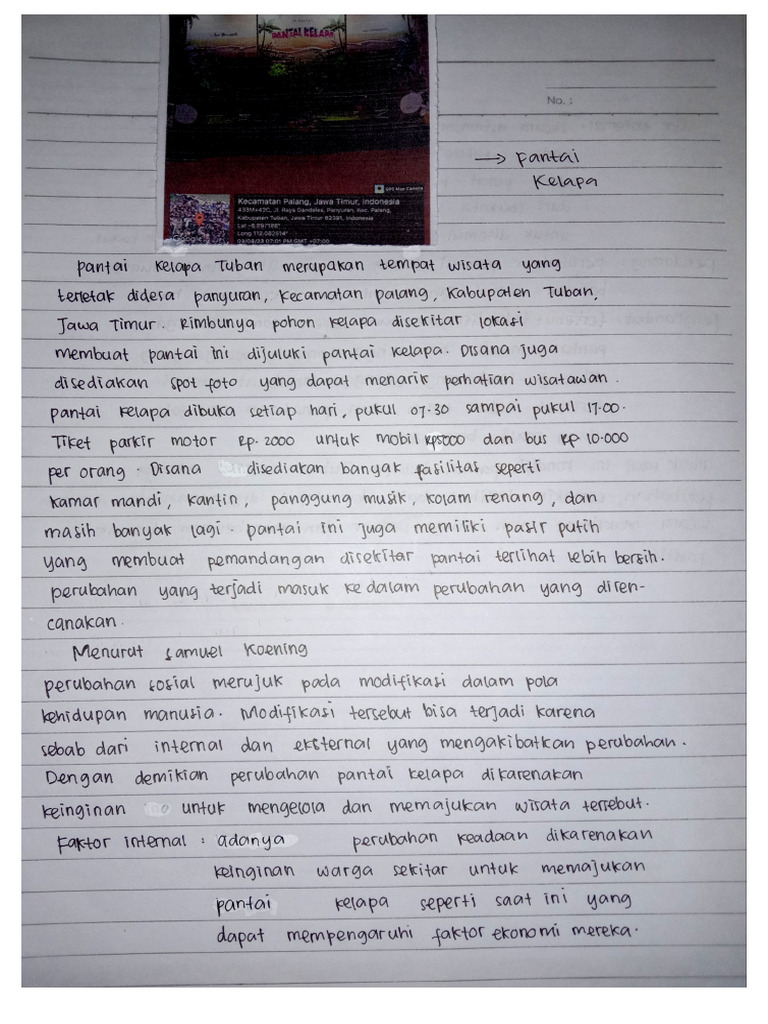 PANTAI KELAPA
No. :
→ pantai
Kelapa
GPS Map Camera
Kecamatan Palang, Jawa Timur, Indonesia
433M+42C, Jl. Raya Daendels, Panyuran, Kec. Palang,
Kabupaten Tuban, Jawa Timur 62391, Indonesia
Lat -6.897166°
Long 112.082514°
03/08/23 07:01 PM GMT +07:00
pantai Kelapa Tuban merupakan tempat wisata yang
terletak didesa panyuran, Kecamatan palang, Kabupaten Tuban,
Jawa Timur. Rimbunya pohon kelapa disekitar lokasi
membuat pantai ini dijuluki pantai kelapa. Disana juga
disediakan spot foto yang dapat menarik perhatian wisatawan.
pantai kelapa dibuka setiap hari, pukul 07.30 sampai pukul 17.00.
Tiket parkir motor Rp. 2000 untuk mobil Rp5000 dan bus Rp 10.000
per orang. Disana disediakan banyak fasilitas seperti
kamar mandi, kantin, panggung musik, kolam renang, dan
masih banyak lagi. pantai ini juga memiliki pasir putih
yang membuat pemandangan disekitar pantai terlihat lebih bersih.
perubahan yang terjadi masuk kedalam perubahan yang diren-
canakan.
Menurut Samuel Koening
perubahan sosial merujuk pada modifikasi dalam pola
kehidupan manusia. Modifikasi tersebut bisa terjadi karena
sebab dari internal dan eksternal yang mengakibatkan perubahan.
Dengan demikian perubahan pantai kelapa dikarenakan
keinginan untuk mengelola dan memajukan wisata tersebut.
Faktor internal : adanya perubahan keadaan dikarenakan
keinginan warga sekitar untuk memajukan
pantai kelapa seperti saat ini yang
dapat mempengaruhi faktor ekonomi mereka.